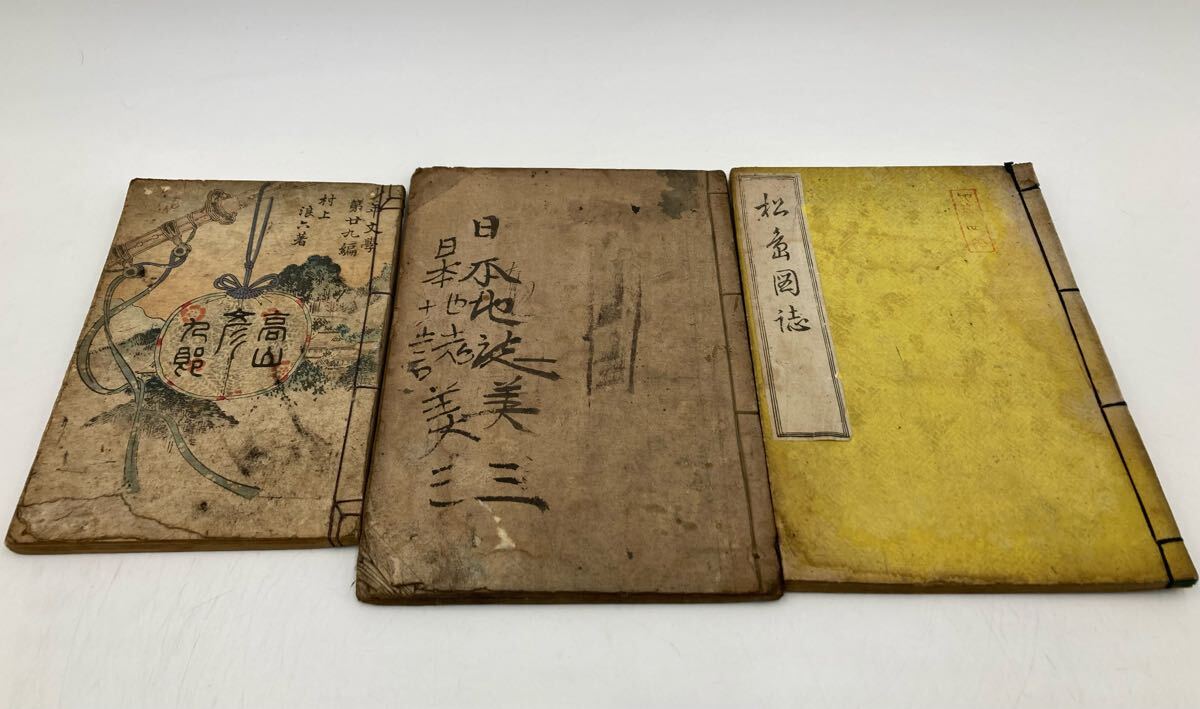 文學
第廿九編
村上
浪六著
高山
彦
九郎
日本地誌美三
日本地誌美三
松島図誌